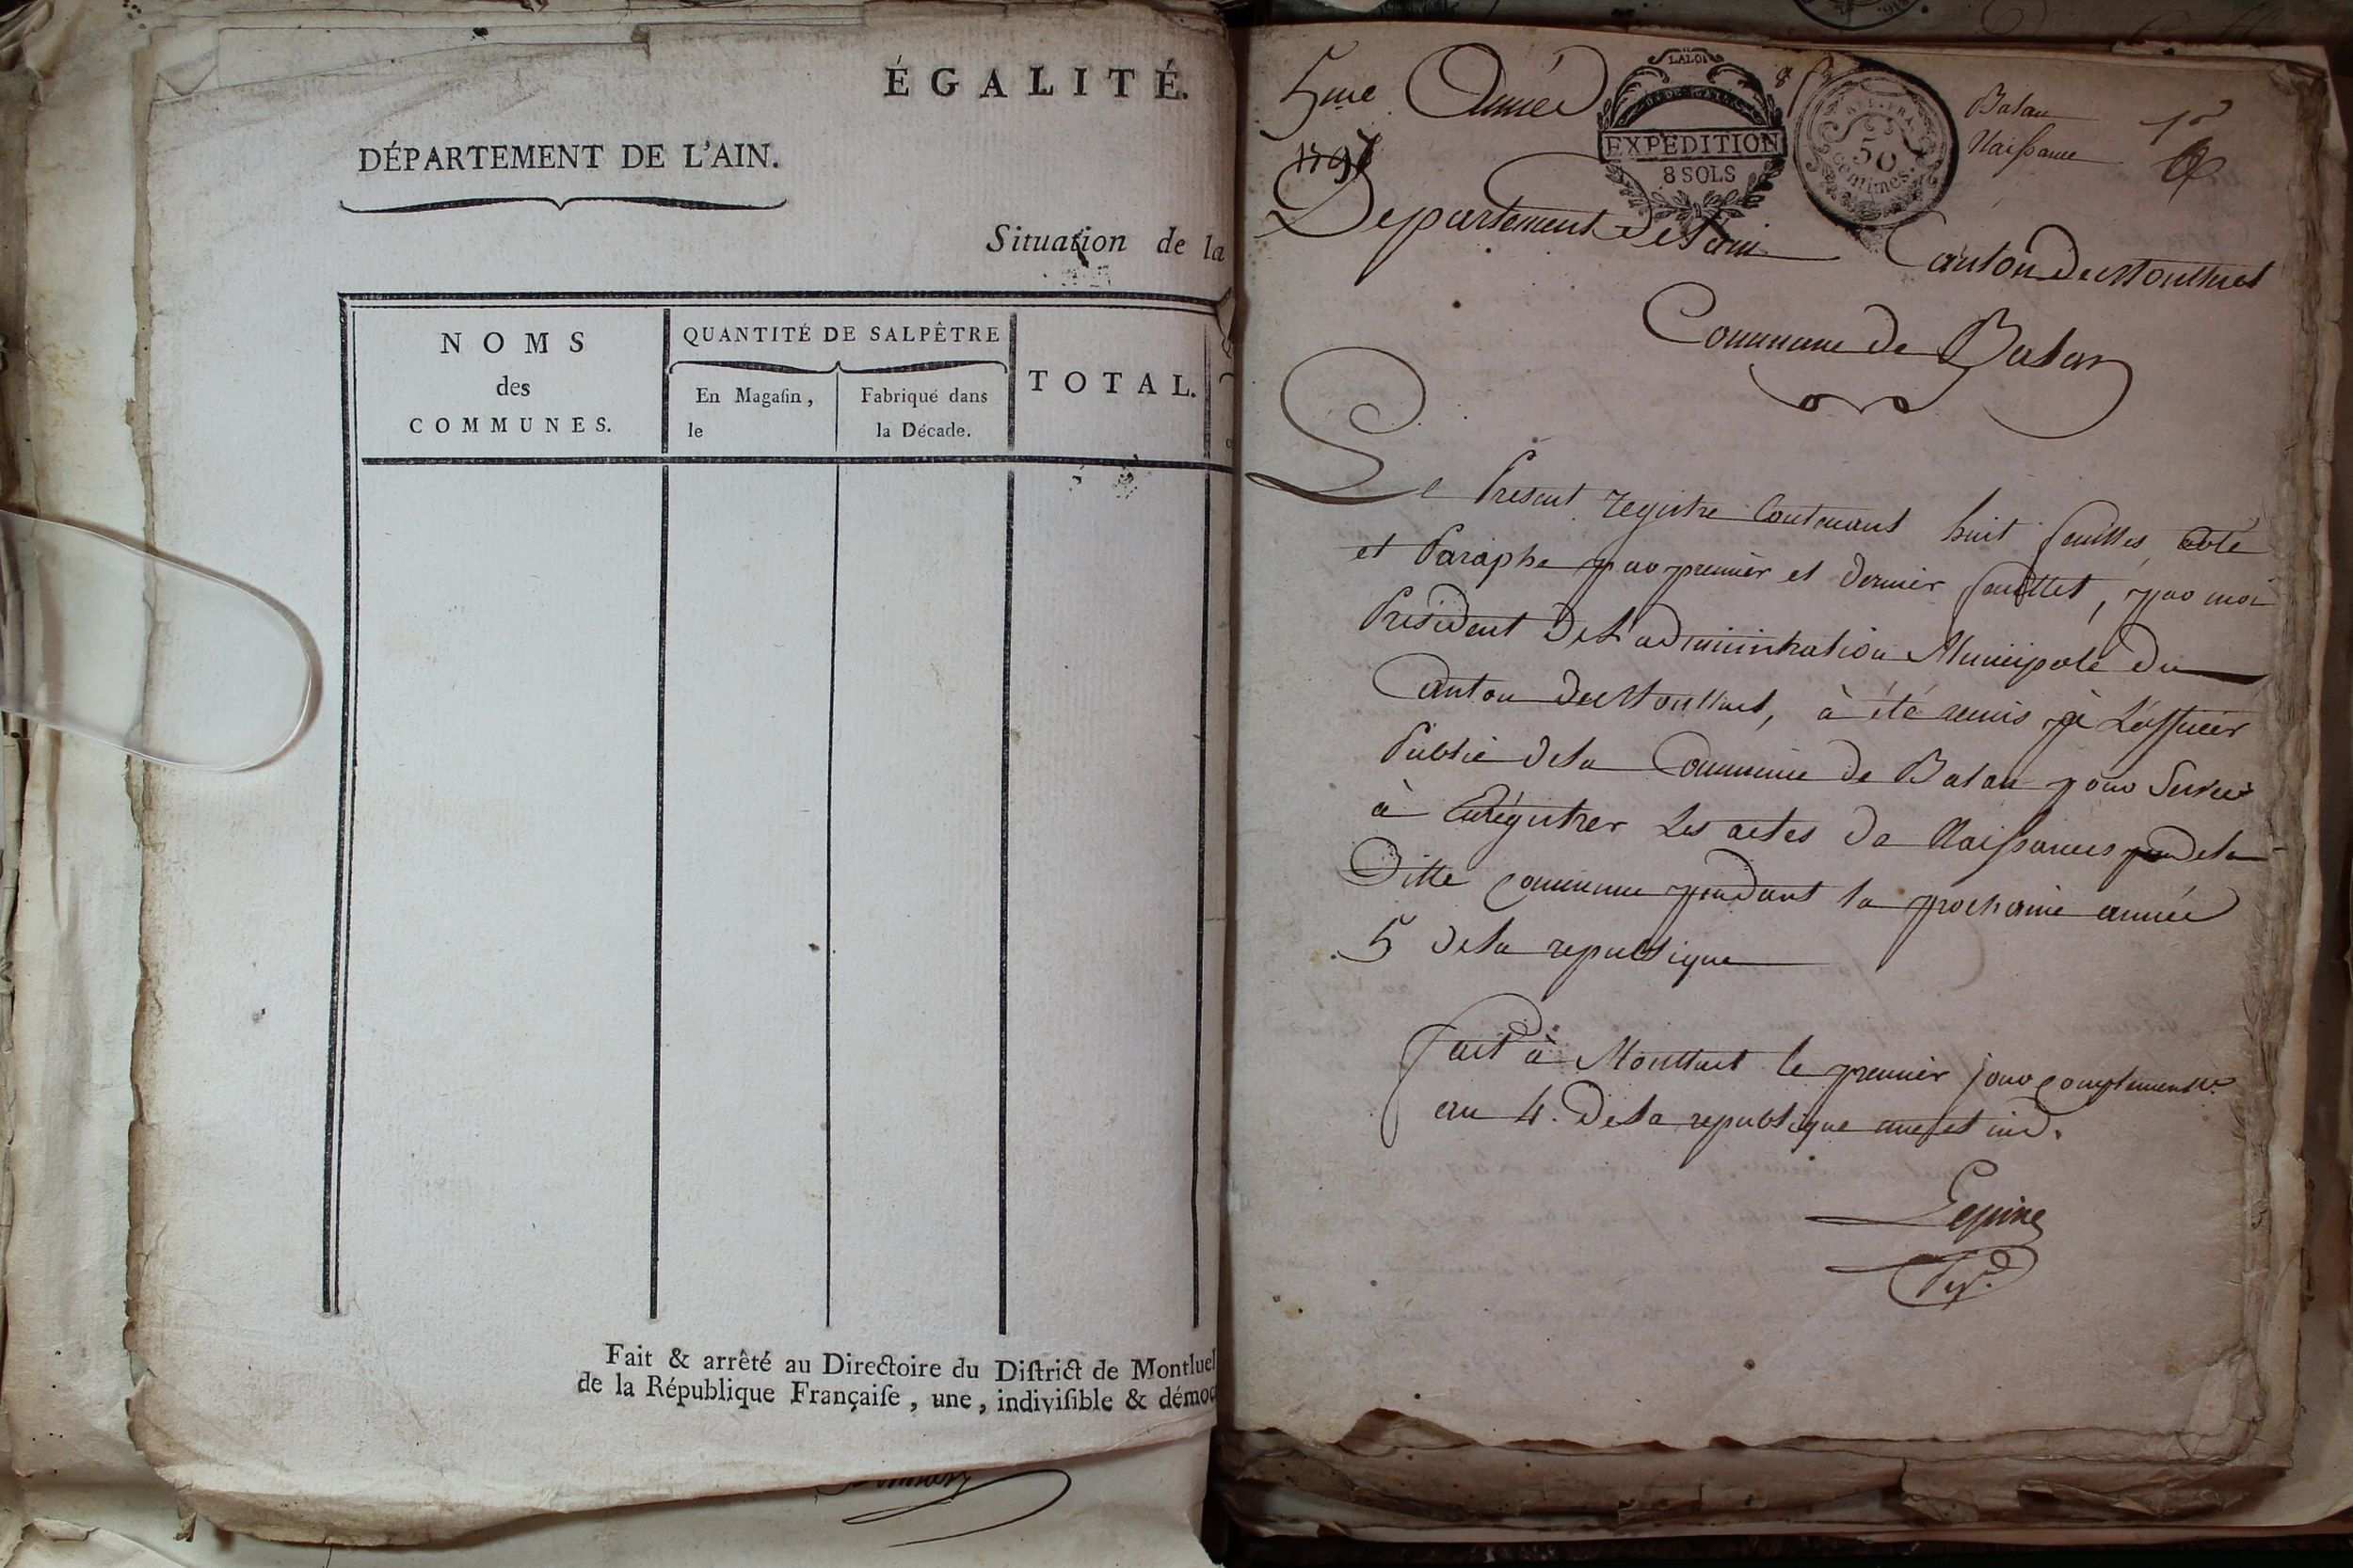 ÉGALITÉ.
DÉPARTEMENT DE L'AIN.
Situation de la
NOMS
des
COMMUNES.
QUANTITÉ DE SALPÊTRE
En Magaſin,
le
Fabriqué dans
la Décade.
TOTAL.
Fait & arrêté au Directoire du Diſtrict de Montluel
de la République Françaiſe, une, indiviſible & démoc
5me Année
1797
LA LOI
EXPEDITION
8 SOLS
50
centimes.
Balan
Naissance
Departement de Lain Canton de Montluel
Commune de Balan
Le Present registre Contenant huit feuilles, coté
et Paraphe par premier et dernier feuillet, par moi
President de L'administration Municipale du
Canton de Montluel, à été remis à L'officier
Public de la Commune de Balan pour Servir
à Enrégistrer Les actes de Naissances de la
Ditte commune pendant la prochaine année
5 de la republique
fait à Montluel le premier jour complementre
an 4. de la republique une et ind.
Lepine
Pt.